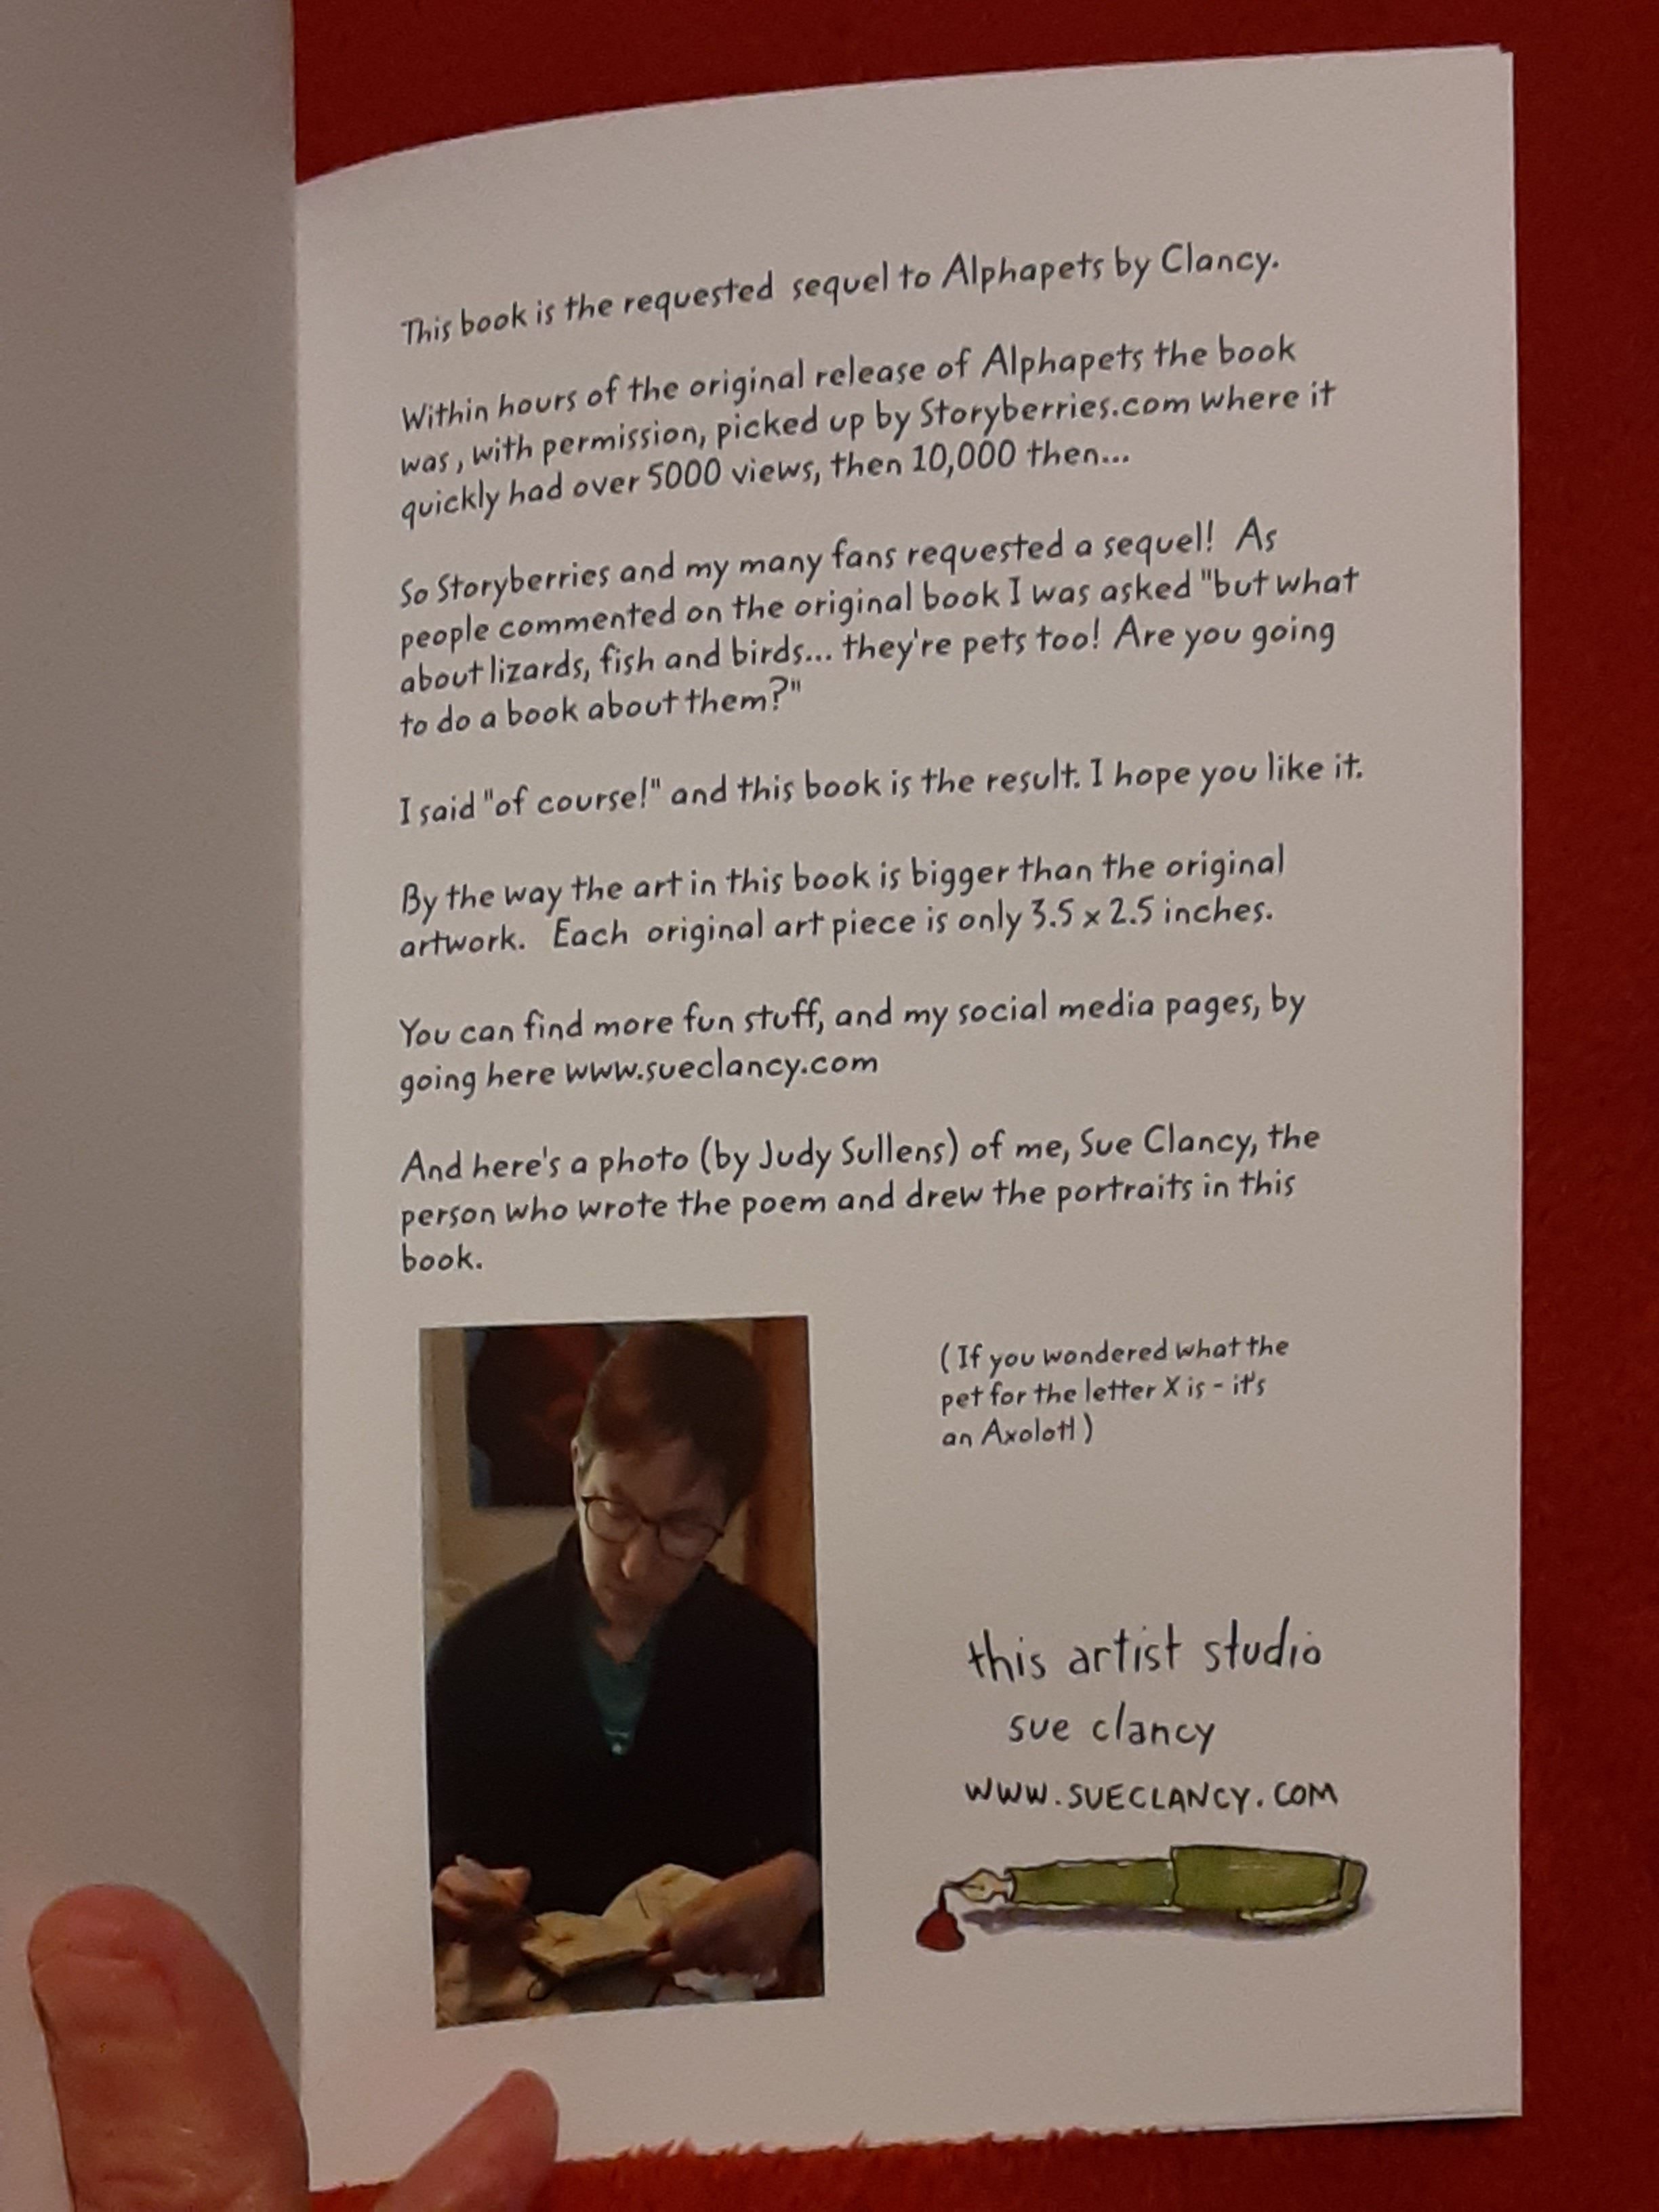 This book is the requested sequel to Alphapets by Clancy.
Within hours of the original release of Alphapets the book
was, with permission, picked up by Storyberries.com where it
quickly had over 5000 views, then 10,000 then...
So Storyberries and my many fans requested a sequel! As
people commented on the original book I was asked "but what
about lizards, fish and birds... they're pets too! Are you going
to do a book about them?"
I said "of course!" and this book is the result. I hope you like it.
By the way the art in this book is bigger than the original
artwork. Each original art piece is only 3.5 x 2.5 inches.
You can find more fun stuff, and my social media pages, by
going here www.sueclancy.com
And here's a photo (by Judy Sullens) of me, Sue Clancy, the
person who wrote the poem and drew the portraits in this
book.
( If you wondered what the
pet for the letter X is - it's
an Axolotl )
this artist studio
sue clancy
WWW.SUECLANCY.COM